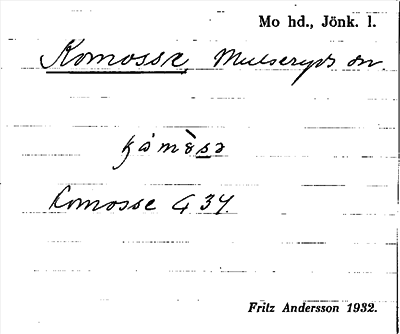 Mo hd., Jönk. l.
Komosse, Mulseryds sn.
kåmὲsə
Komosse G 34.
Fritz Andersson 1932.